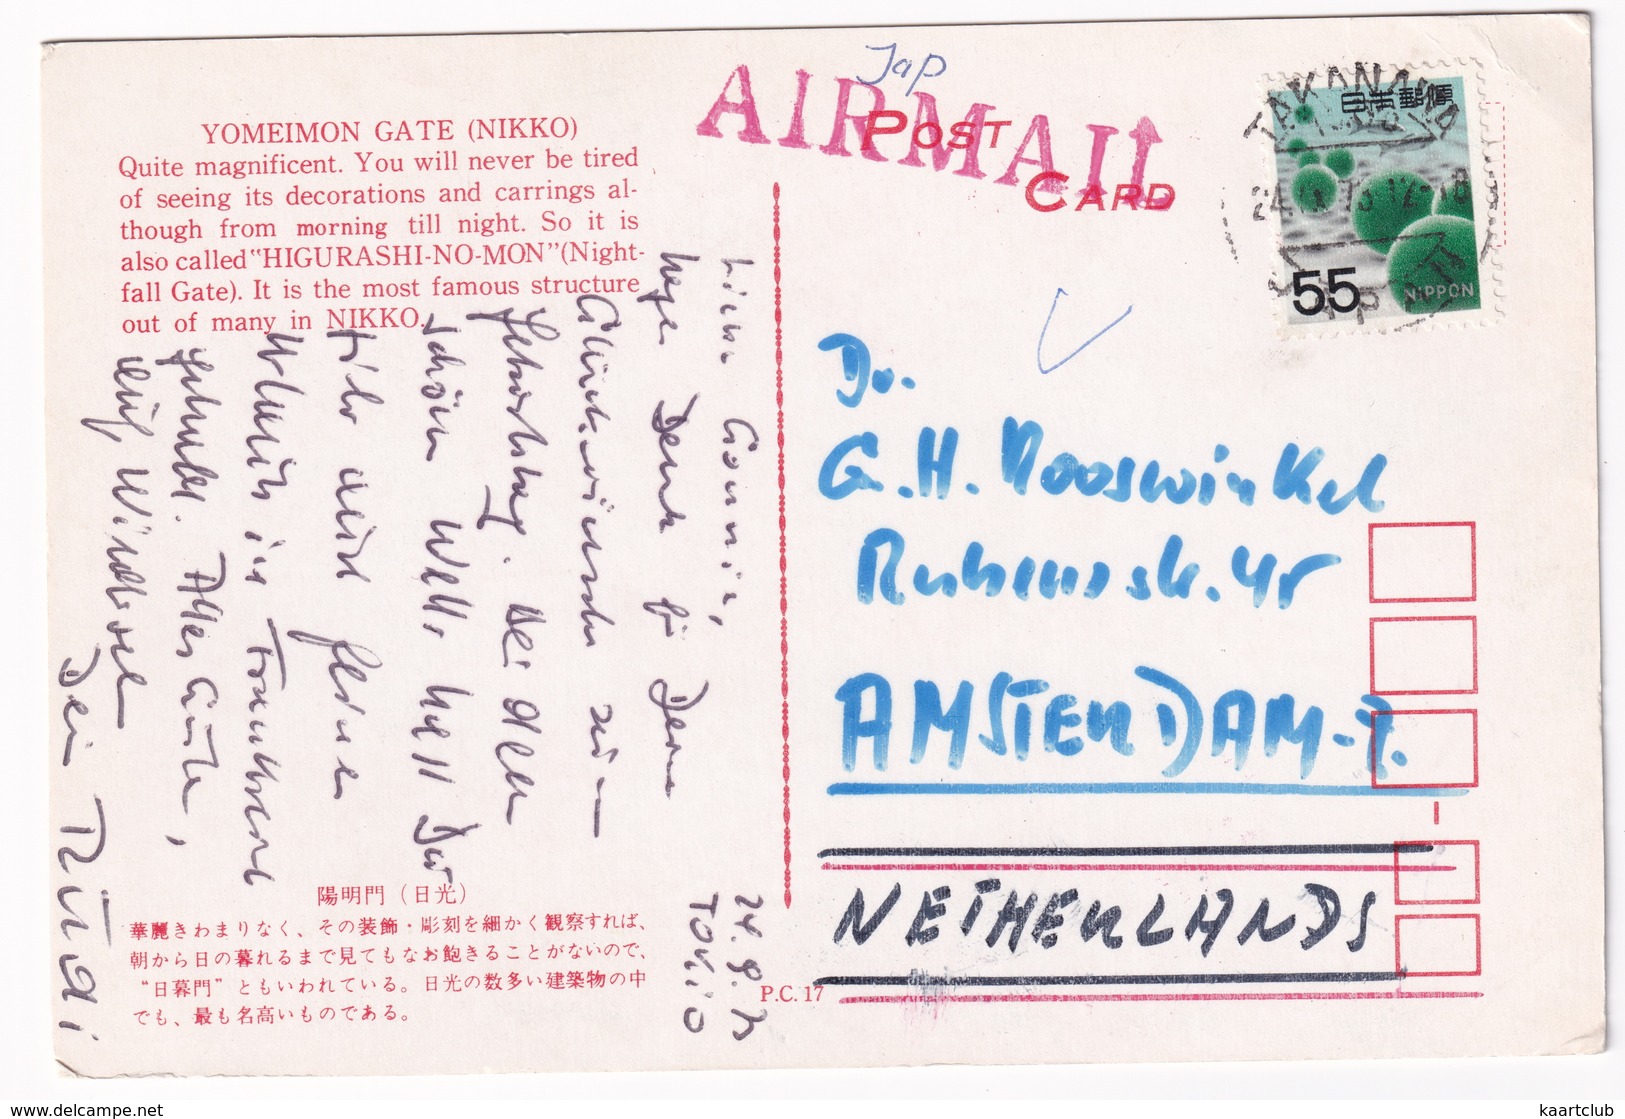 YOMEIMON GATE (NIKKO)
Quite magnificent. You will never be tired
of seeing its decorations and carrings al-
though from morning till night. So it is
also called "HIGURASHI-NO-MON" (Night-
fall Gate). It is the most famous structure
out of many in NIKKO.
Jap
AIRMAIL
POST
CARD
TAKANAWA
24. IX. 73. 12-18
日本郵便
55
NIPPON
24. 9. 73
TOKIO
Liebe Connie,
Dank für Deine
Glückwünsche zum
Geburtstag. Bei dem
schönen Wetter hast Du
einen
Urlaub in Frankreich
gehabt. Alles Gute,
auf Wiedersehen
Dein Rüdi
Dr.
G. H. Mooswinkel
Rubensstr. 45
AMSTERDAM-Z.
NETHERLANDS
陽明門(日光)
華麗きわまりなく、その装飾・彫刻を細かく観察すれば、
朝から日の暮れるまで見てもなお飽きることがないので、
“日暮門”ともいわれている。日光の数多い建築物の中
でも、最も名高いものである。
P.C. 17
https://www.delcampe.net
kaartclub